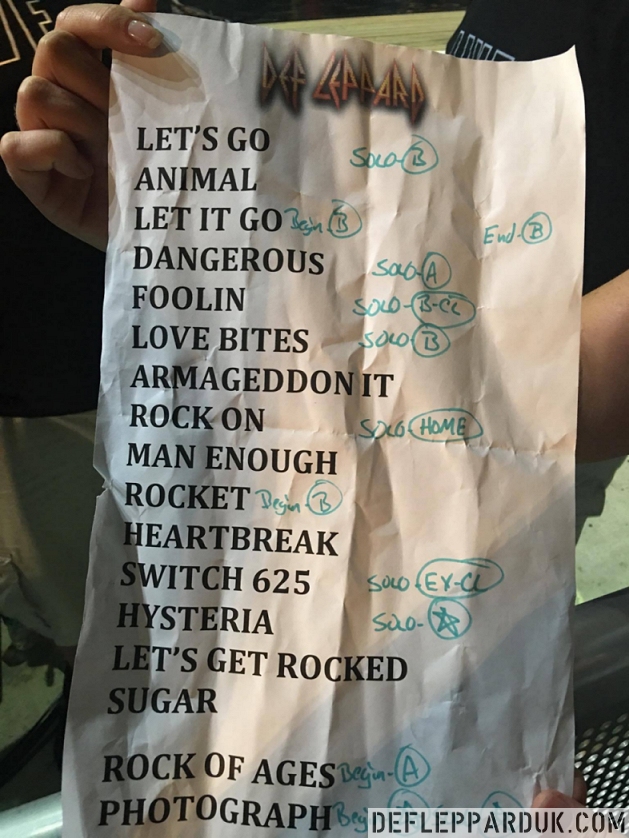 DEF LEPPARD
LET'S GO SOLO-B
ANIMAL
LET IT GO Begin B End-B
DANGEROUS SOLO-A
FOOLIN SOLO-B-CL
LOVE BITES SOLO B
ARMAGEDDON IT
ROCK ON SOLO HOME
MAN ENOUGH
ROCKET Begin-B
HEARTBREAK
SWITCH 625 SOLO EX-CL
HYSTERIA SOLO-
LET'S GET ROCKED
SUGAR
ROCK OF AGES Begin-A
PHOTOGRAPH
DEFLEPPARDUK.COM